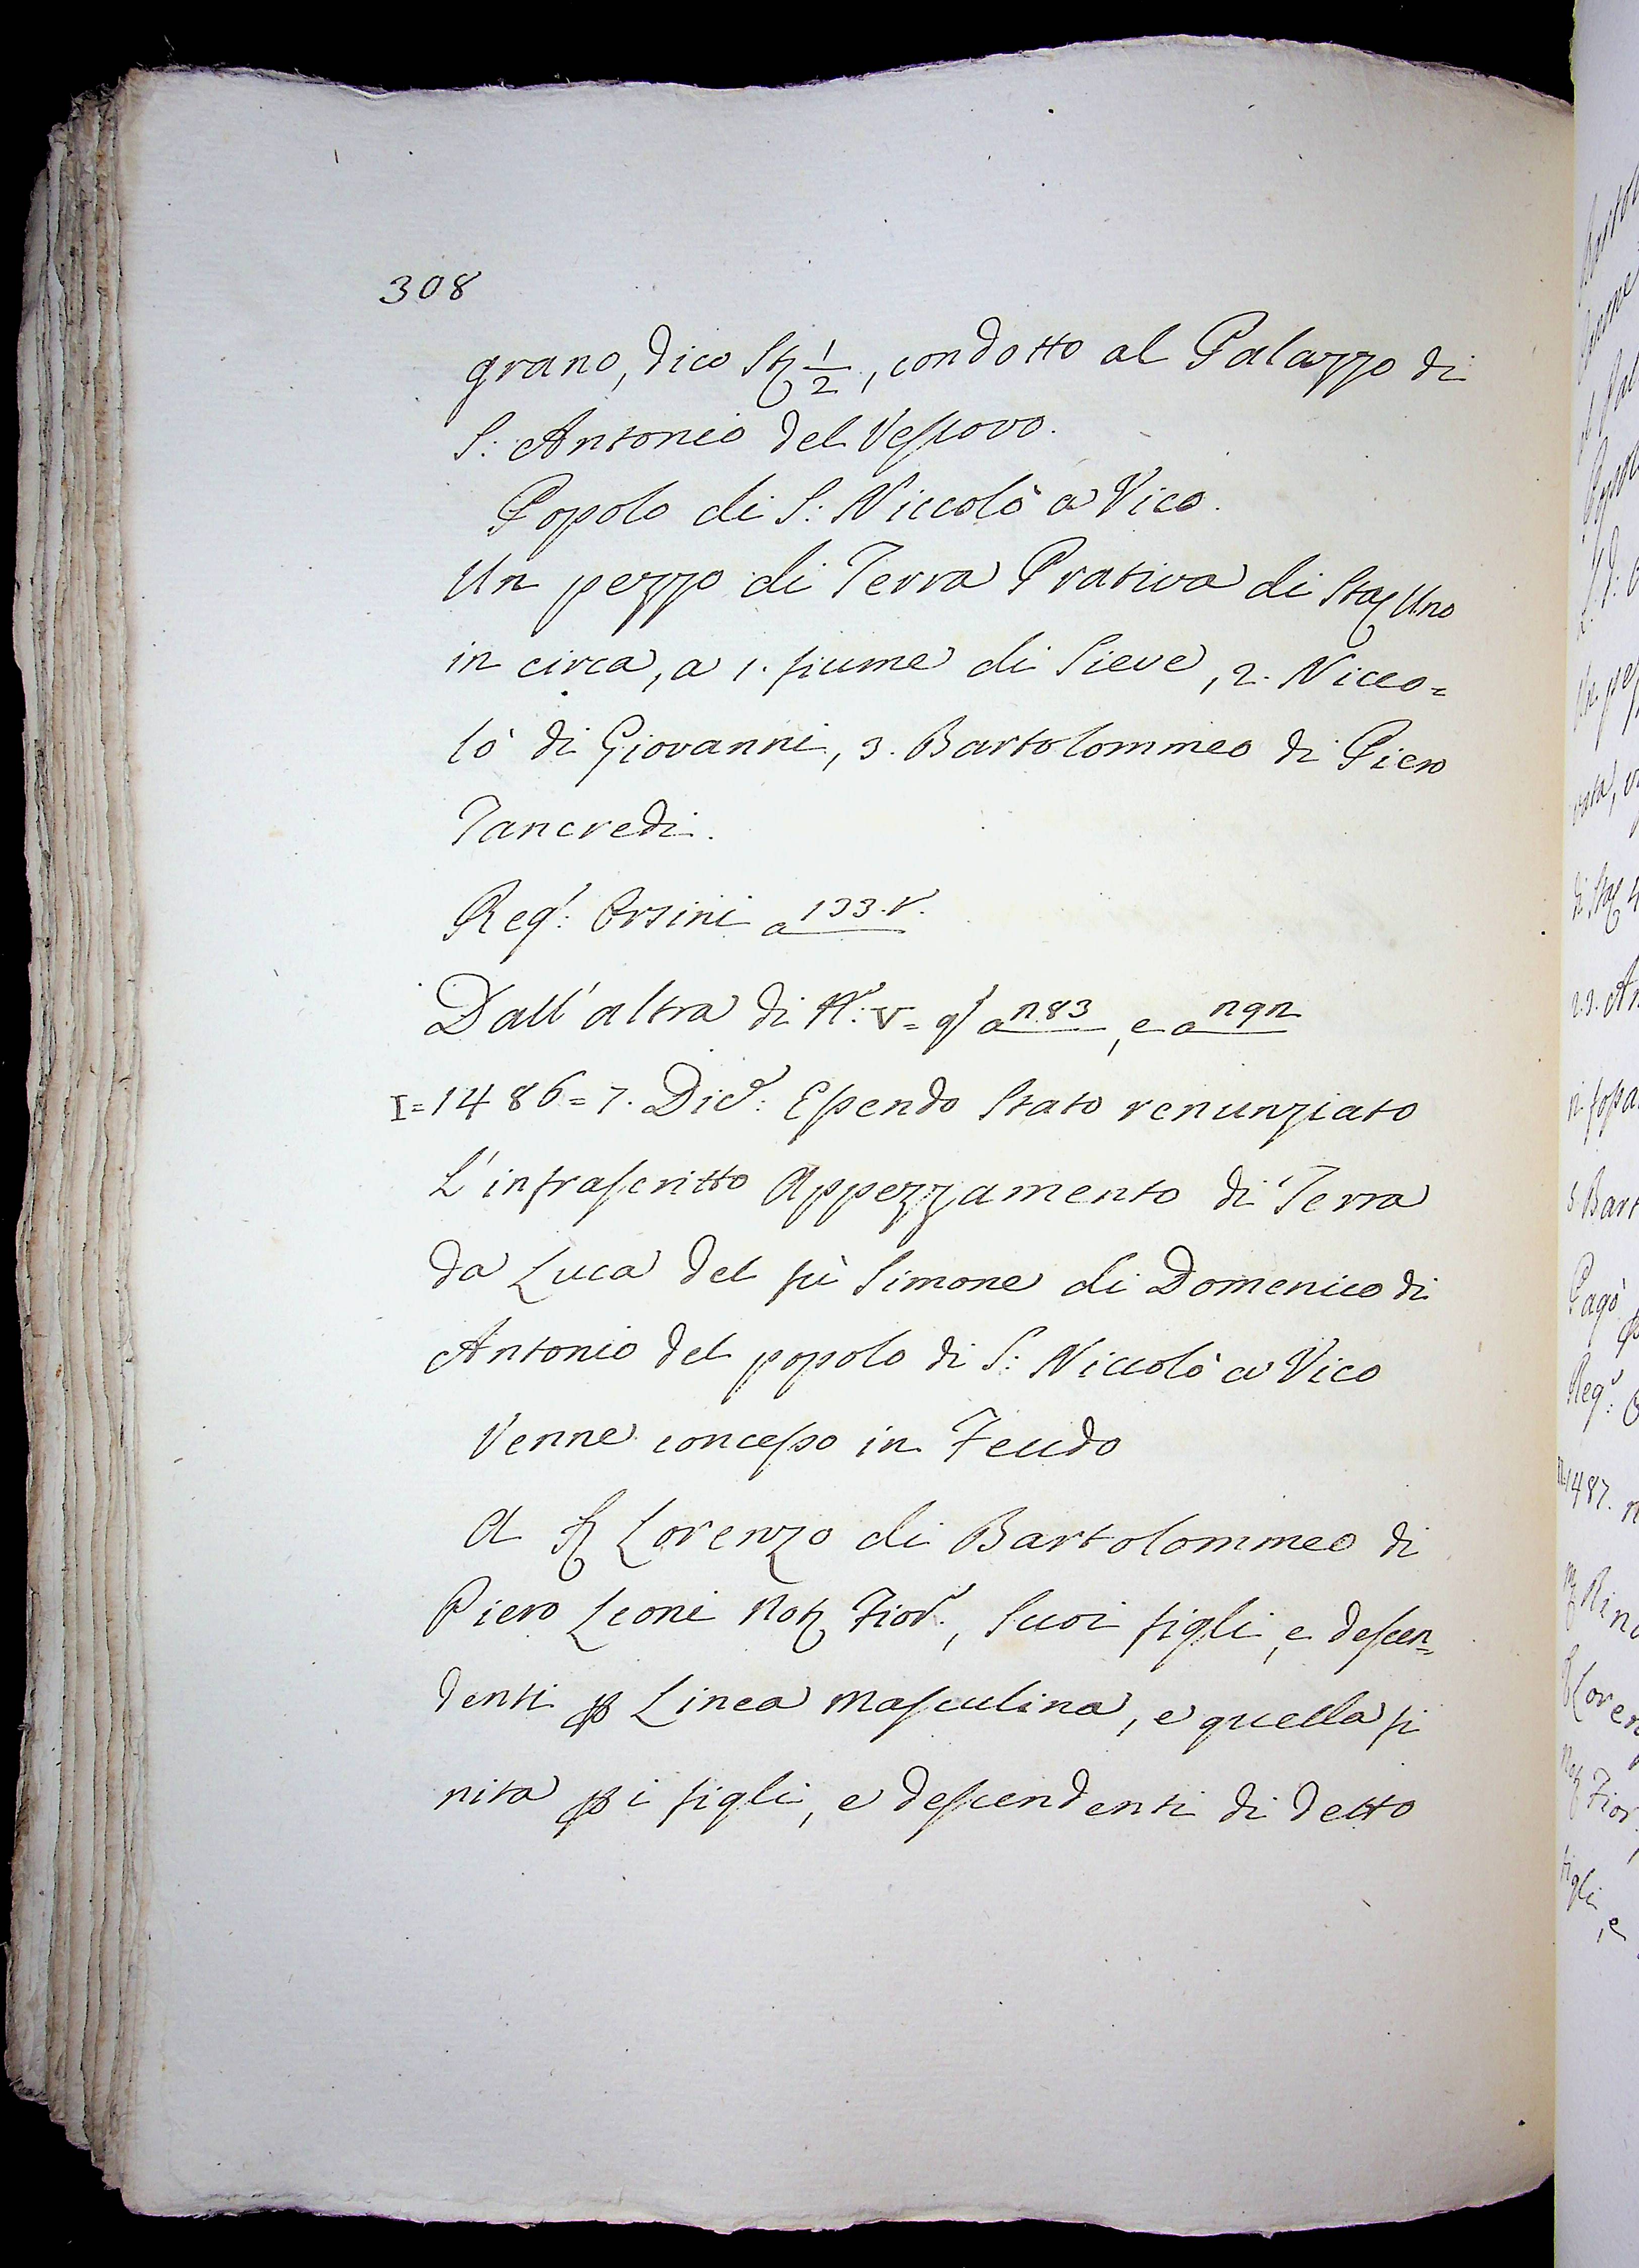 308
grano, dico St 1/2, condotto al Palazzo di
S: Antonio del Vescovo.
Popolo di S: Niccolò a Vico.
Un pezzo di Terra Prativa di Sta Uno
in circa, a 1. fiume di Sieve, 2. Nicco=
lò di Giovanni, 3. Bartolommeo di Piero
Tancredi.
Reg: Orsini a 133. v.
Dall'altra di N: V= a n83, e a
I=1486=7. Dic: Essendo stato renunziato
L'infrascritto Appezzamento di Terra
da Luca del fù Simone di Domenico di
Antonio del popolo di S: Niccolò a Vico
Venne concesso in Feudo
A Lorenzo di Bartolommeo di
Piero Leoni Not Fior:, Suoi figli, e descen=
denti p Linea Masculina, e quella fi
nita p i figli, e descendenti di detto